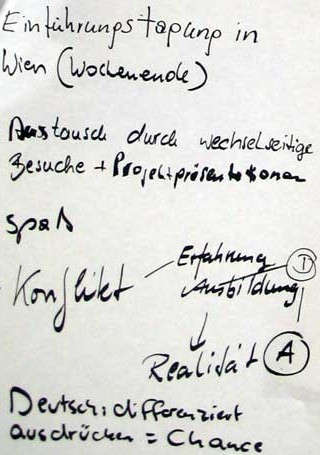 Einführungstagung in
Wien (Wochenende)
Austausch durch wechselseitige
Besuche + Projektpräsentationen
Spaß
Konflikt — Erfahrung
Ausbildung D
Realität A
Deutsch: differenziert
ausdrücken = Chance